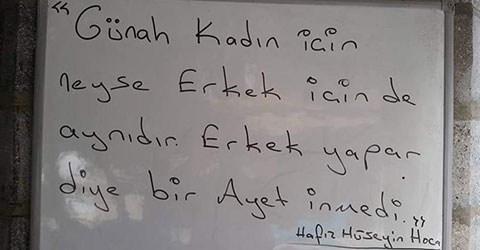 "Günah Kadın için
neyse Erkek için de
aynıdır. Erkek yapar
diye bir Ayet inmedi."
Hafız Hüseyin Hoca